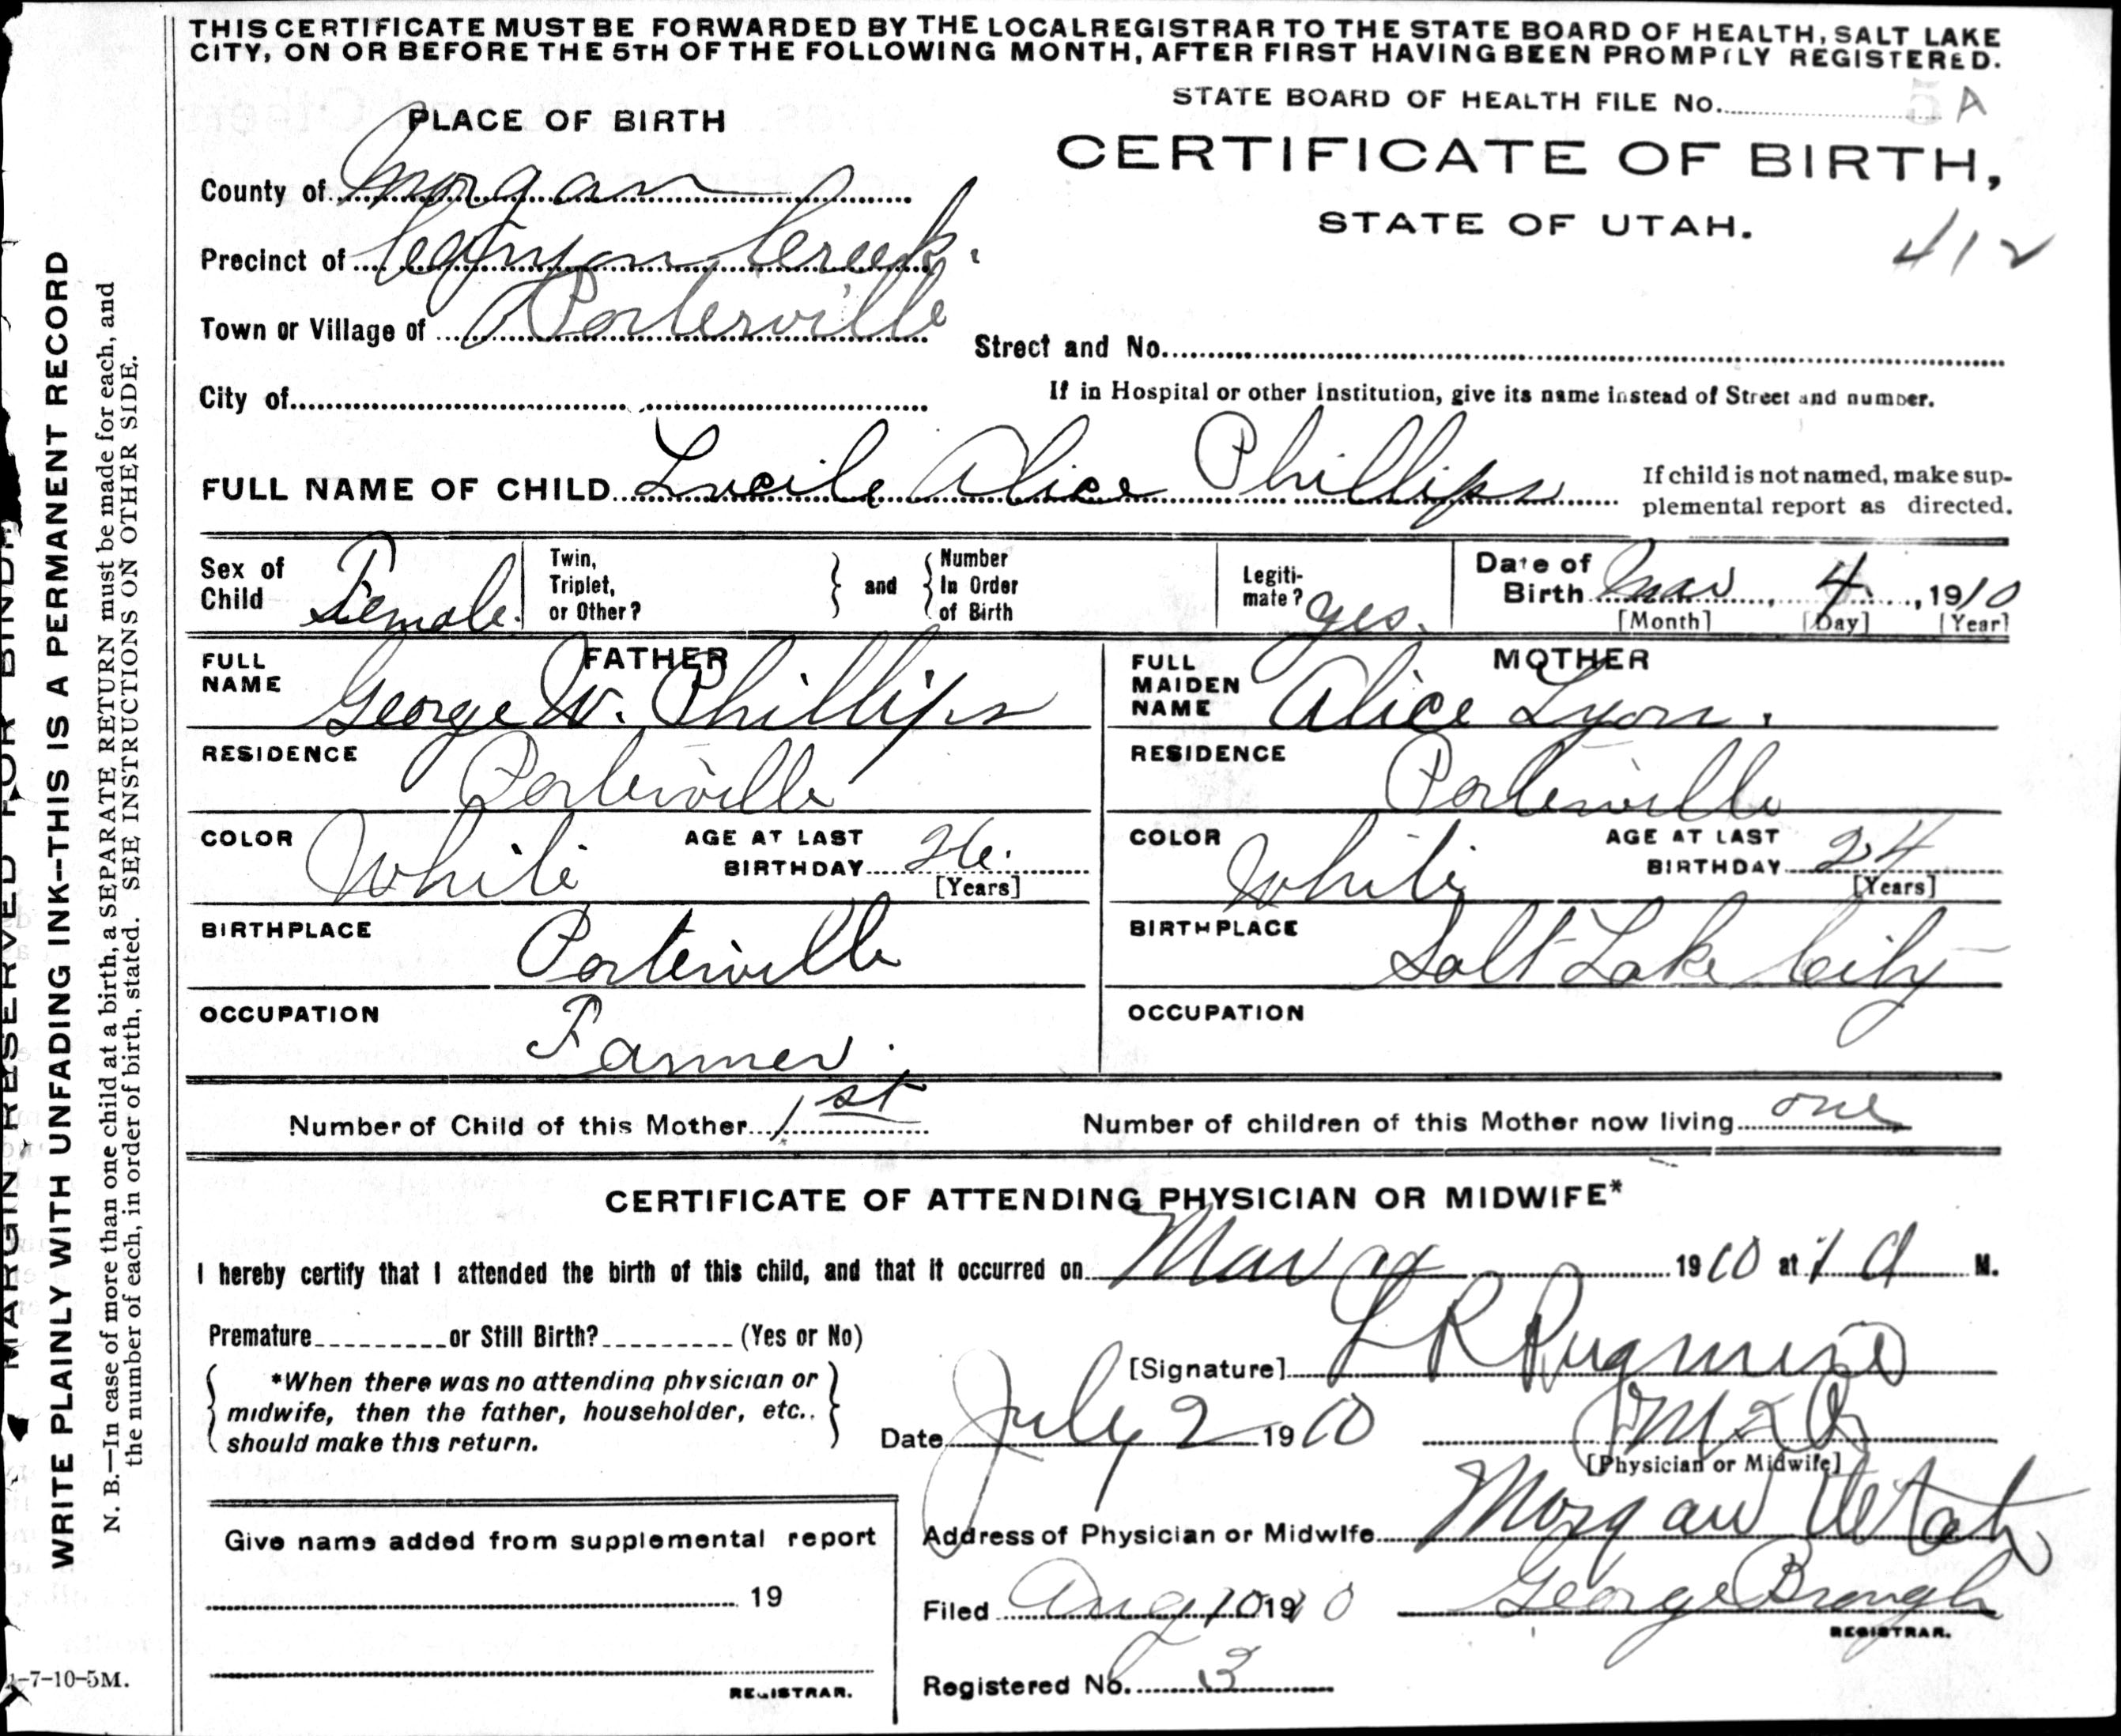 THIS CERTIFICATE MUST BE FORWARDED BY THE LOCAL REGISTRAR TO THE STATE BOARD OF HEALTH, SALT LAKE
CITY, ON OR BEFORE THE 5TH OF THE FOLLOWING MONTH, AFTER FIRST HAVING BEEN PROMPTLY REGISTERED.
STATE BOARD OF HEALTH FILE No. 5 A
PLACE OF BIRTH
CERTIFICATE OF BIRTH,
STATE OF UTAH.
412
County of Morgan
Precinct of Canyon Creek.
Town or Village of Porterville
Street and No.
City of
If in Hospital or other Institution, give its name instead of Street and number.
FULL NAME OF CHILD Lucile Alice Phillips
If child is not named, make sup-
plemental report as directed.
Sex of Child Female.
Twin, Triplet, or Other? } and { Number In Order of Birth
Legiti-mate? yes.
Date of Birth Mar, 4, 1910
[Month] [Day] [Year]
FATHER
FULL NAME George W. Phillips
RESIDENCE Porterville
COLOR White AGE AT LAST BIRTHDAY 26.
[Years]
BIRTHPLACE Porterville
OCCUPATION Farmer.
MOTHER
FULL MAIDEN NAME Alice Lyon.
RESIDENCE Porterville
COLOR White AGE AT LAST BIRTHDAY 24
[Years]
BIRTHPLACE Salt Lake City
OCCUPATION
Number of Child of this Mother 1st
Number of children of this Mother now living one
CERTIFICATE OF ATTENDING PHYSICIAN OR MIDWIFE*
I hereby certify that I attended the birth of this child, and that it occurred on Mar 1910 at 1 A M.
Premature or Still Birth? (Yes or No)
*When there was no attending physician or
midwife, then the father, householder, etc.,
should make this return.
[Signature] L R
Date July 2 1910
[Physician or Midwife]
Address of Physician or Midwife Morgan Utah
Filed Aug 10 1910 George Brough
REGISTRAR.
Registered No. 3
Give name added from supplemental report
19
REGISTRAR.
MARGIN RESERVED FOR BINDI
WRITE PLAINLY WITH UNFADING INK--THIS IS A PERMANENT RECORD
N. B.—In case of more than one child at a birth, a SEPARATE RETURN must be made for each, and
the number of each, in order of birth, stated. SEE INSTRUCTIONS ON OTHER SIDE.
-7-10-5M.